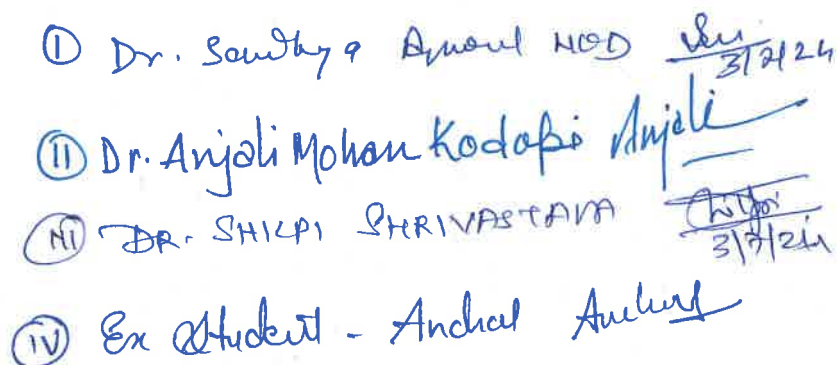 ① Dr. Sandhya HOD 3/7/24
② Dr. Anjali Mohan Kodopi Anjali
III DR. SHILPI SHRIVASTAVA Shilpi 3/7/24
IV Ex Student - Anchal Anchal